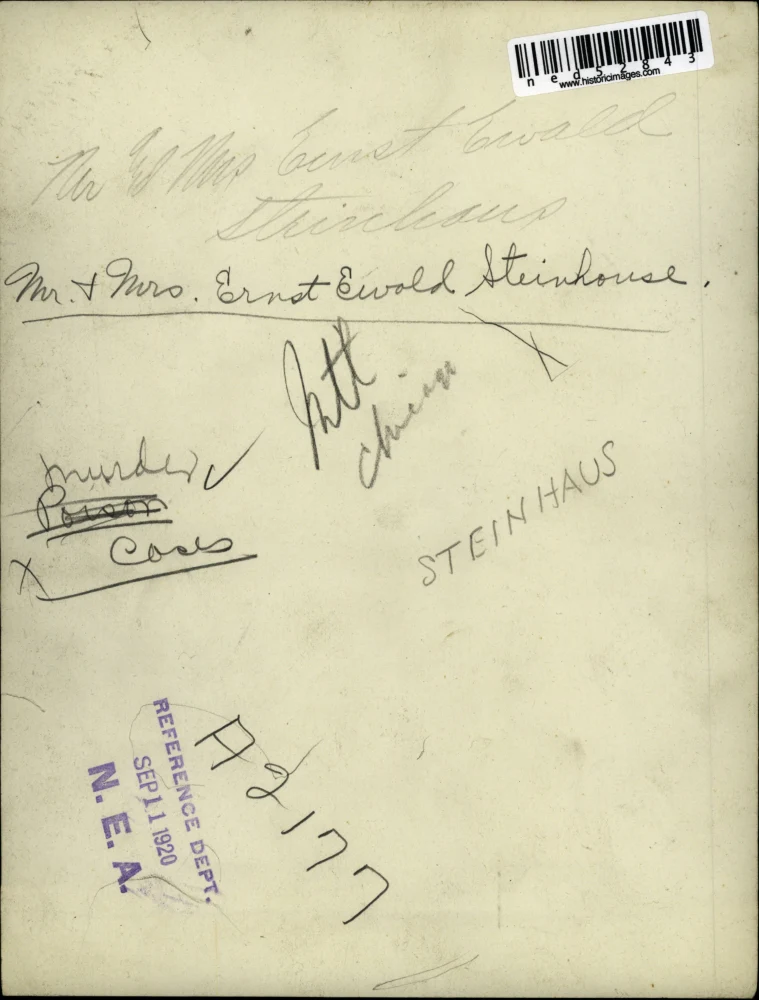 ned52843
www.historicimages.com
Mr & Mrs Ernst Ewald
Steinhaus
Mr. & Mrs. Ernst Ewald Steinhouse.
Chicago
Murder
Poison
Cases
STEINHAUS
A2177
REFERENCE DEPT.
SEP 11 1920
N. E. A.